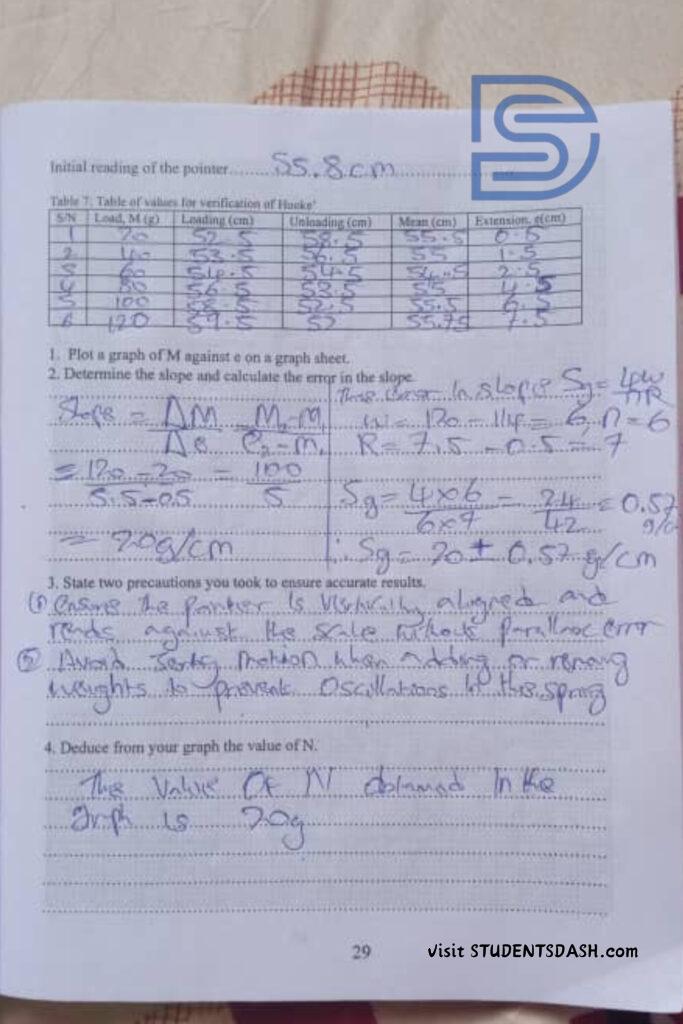 Initial reading of the pointer 55.8cm
Table 7: Table of values for verification of Hooke'
S/N Load, M (g) Loading (cm) Unloading (cm) Mean (cm) Extension, e(cm)
1 20 52.5 58.5 55.5 0.5
2 40 53.5 56.5 55 1.5
3 60 54.5 54.5 54.5 2.5
4 80 56.5 53.5 55 4.5
5 100 58.5 52.5 55.5 6.5
6 120 59.5 52 55.75 7.5
1. Plot a graph of M against e on a graph sheet.
2. Determine the slope and calculate the error in the slope.
The error in slope Sg = 4w/nR
Slope = ΔM/Δe = M2-M1/e2-m1
W = 120 - 114 = 6, n = 6
R = 7.5 - 0.5 = 7
= 120-20/5.5-0.5 = 100/5
Sg = 4×6/6×7 = 24/42 = 0.57
= 20g/cm
∴ Sg = 20 ± 0.57 g/cm
3. State two precautions you took to ensure accurate results.
(1) ensure the pointer is vertically aligned and
reads against the scale without parallax error
(2) Avoid jerky motion when adding or removing
weights to prevent oscillations in the spring
4. Deduce from your graph the value of N.
The value of N obtained in the
graph is 20g
29
visit STUDENTSDASH.com